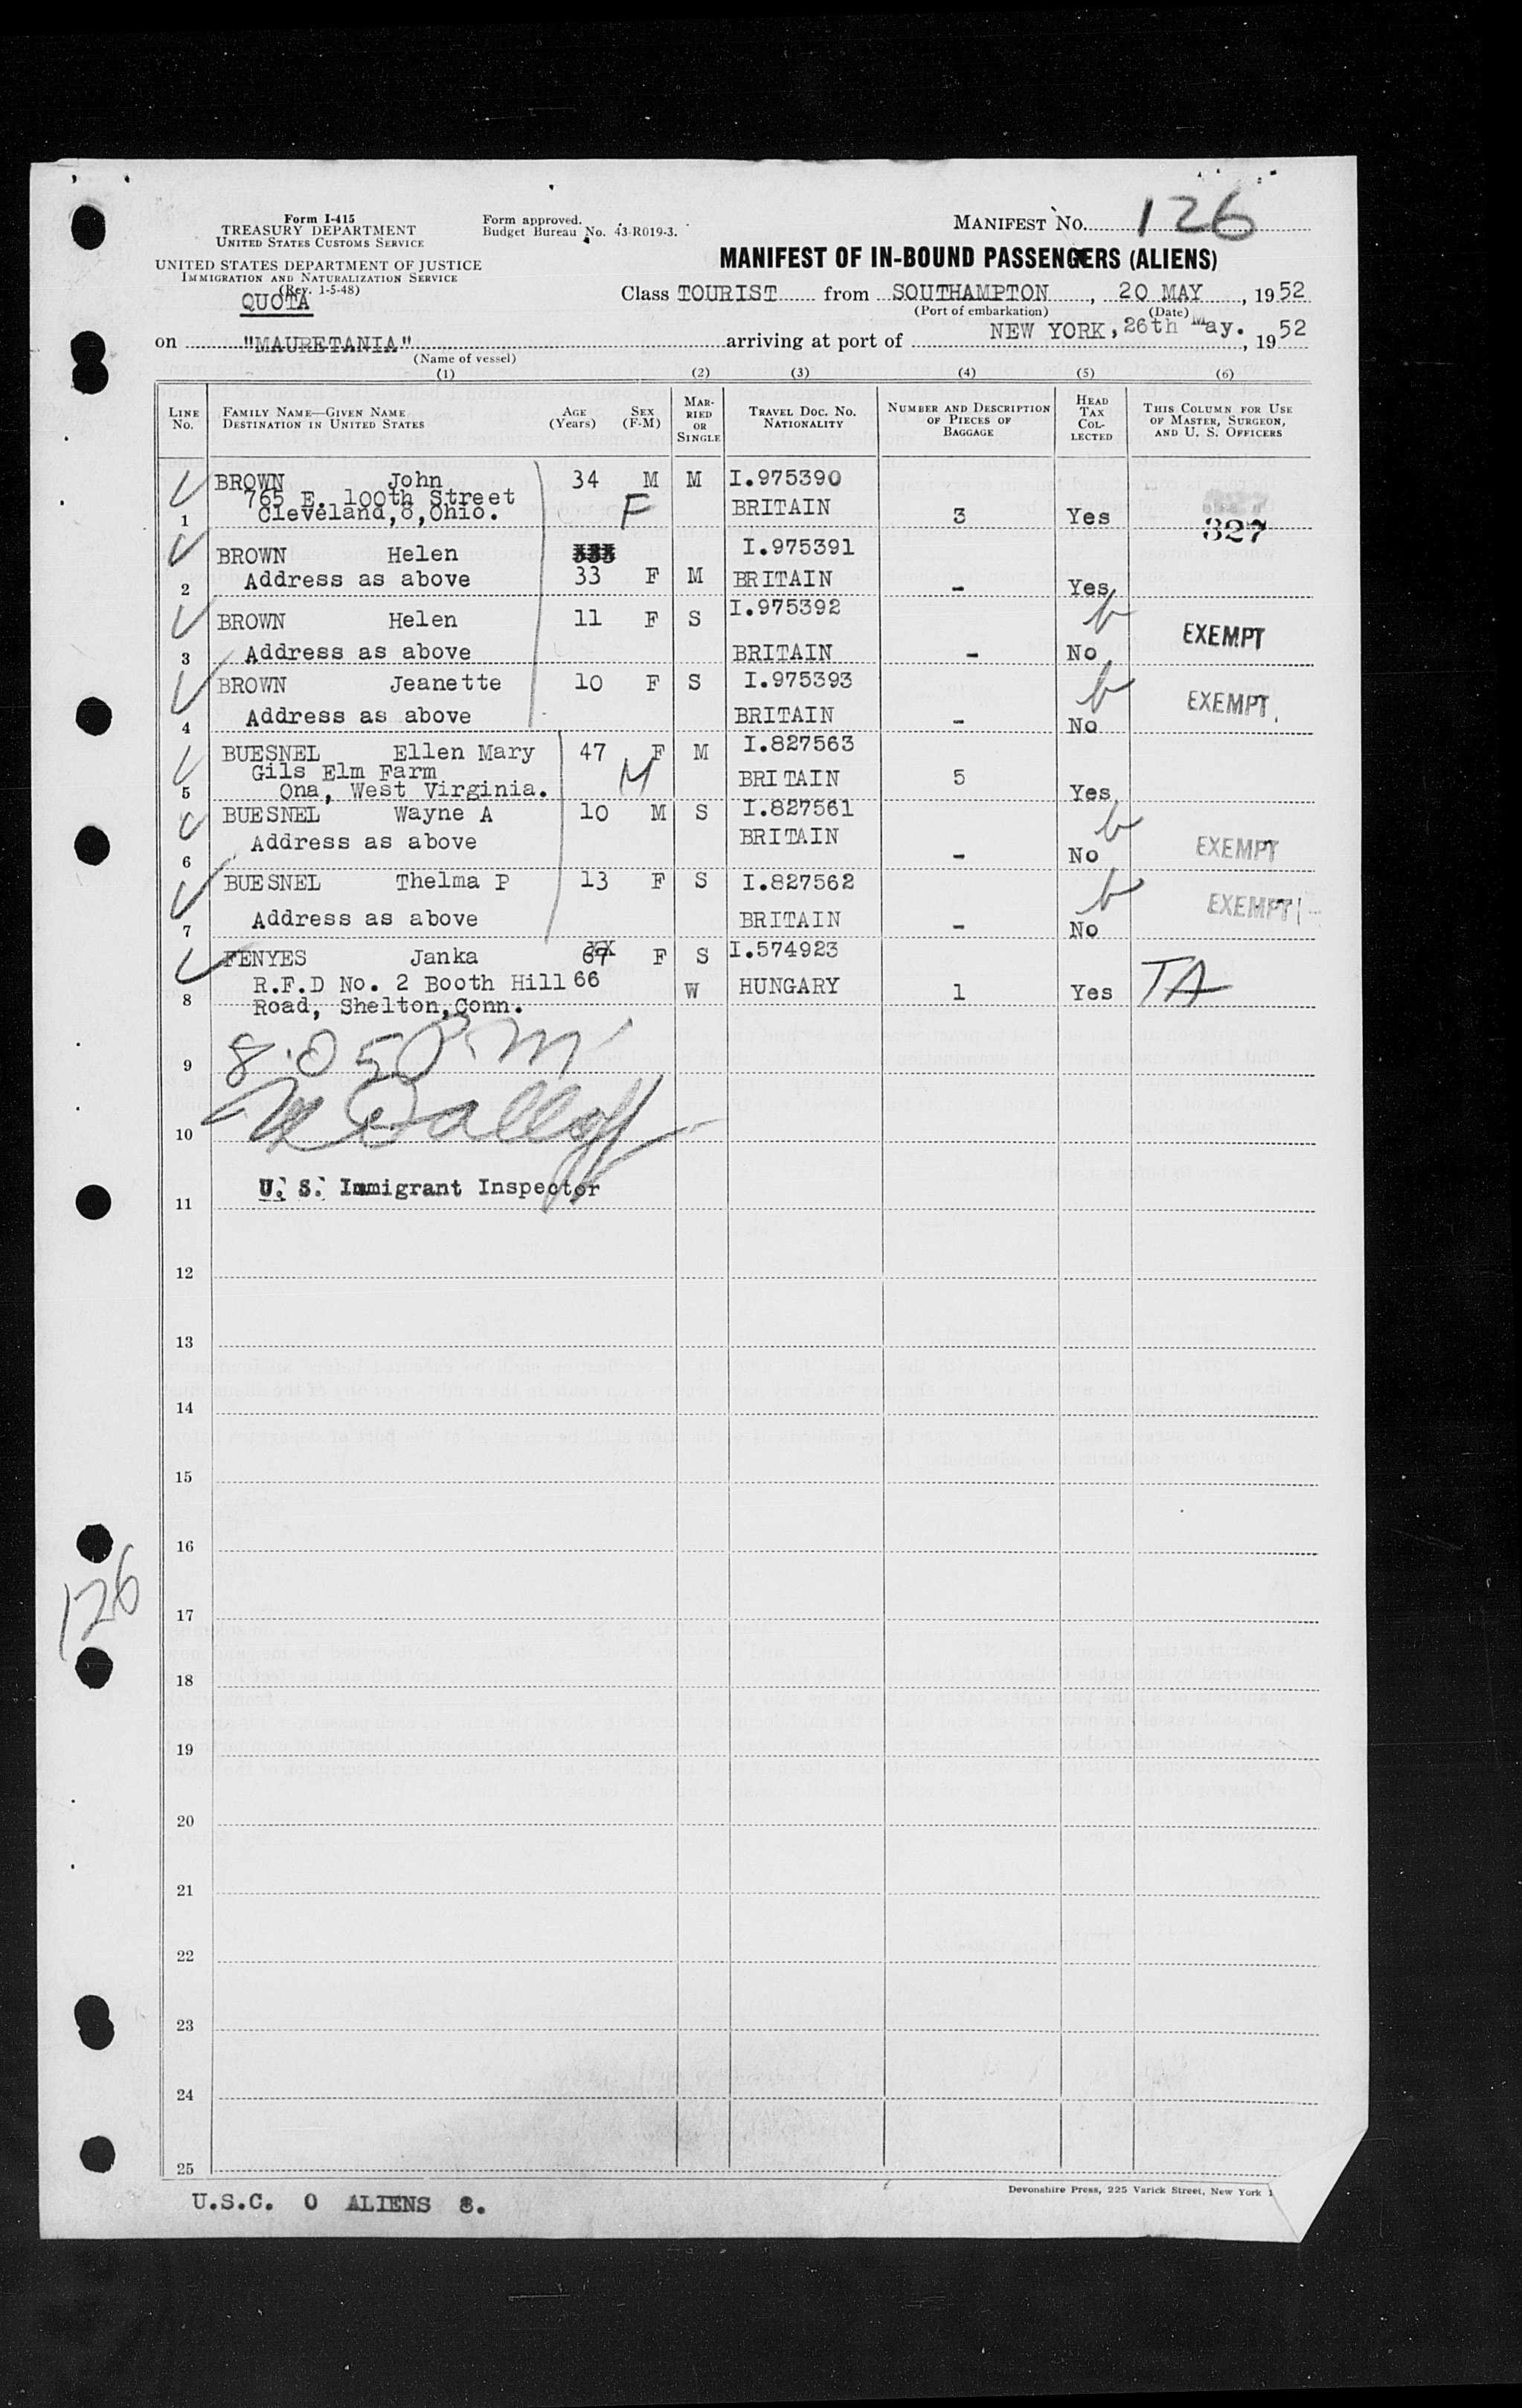 Form I-415
TREASURY DEPARTMENT
UNITED STATES CUSTOMS SERVICE
UNITED STATES DEPARTMENT OF JUSTICE
IMMIGRATION AND NATURALIZATION SERVICE
(Rev. 1-5-48)
QUOTA
Form approved.
Budget Bureau No. 43-R019-3.
MANIFEST No. 126
MANIFEST OF IN-BOUND PASSENGERS (ALIENS)
Class TOURIST from SOUTHAMPTON, 20 MAY, 1952
(Port of embarkation) (Date)
on "MAURETANIA" arriving at port of NEW YORK, 26th May., 1952
(Name of vessel)
(1) (2) (3) (4) (5) (6)
LINE No. FAMILY NAME—GIVEN NAME DESTINATION IN UNITED STATES AGE (Years) SEX (F-M) MARRIED OR SINGLE TRAVEL DOC. NO. NATIONALITY NUMBER AND DESCRIPTION OF PIECES OF BAGGAGE HEAD TAX COLLECTED THIS COLUMN FOR USE OF MASTER, SURGEON, AND U. S. OFFICERS
BROWN John 34 M M I.975390
765 E. 100th Street
1 Cleveland,8,Ohio. F BRITAIN 3 Yes 327
BROWN Helen I.975391
2 Address as above 33 F M BRITAIN - Yes
BROWN Helen 11 F S I.975392
3 Address as above BRITAIN - No EXEMPT
BROWN Jeanette 10 F S I.975393
4 Address as above BRITAIN - No EXEMPT
BUESNEL Ellen Mary 47 F M I.827563
Gils Elm Farm M BRITAIN 5
5 Ona, West Virginia. Yes
BUESNEL Wayne A 10 M S I.827561
6 Address as above BRITAIN - No EXEMPT
BUESNEL Thelma P 13 F S I.827562
7 Address as above BRITAIN - No EXEMPT
FENYES Janka 67 F S I.574923
R.F.D No. 2 Booth Hill 66 W HUNGARY 1 Yes TA
8 Road, Shelton,Conn.
9 8.05 PM
10
U. S. Immigrant Inspector
11
12
13
14
15
16
126
17
18
19
20
21
22
23
24
25
Devonshire Press, 225 Varick Street, New York
U.S.C. 0 ALIENS 8.